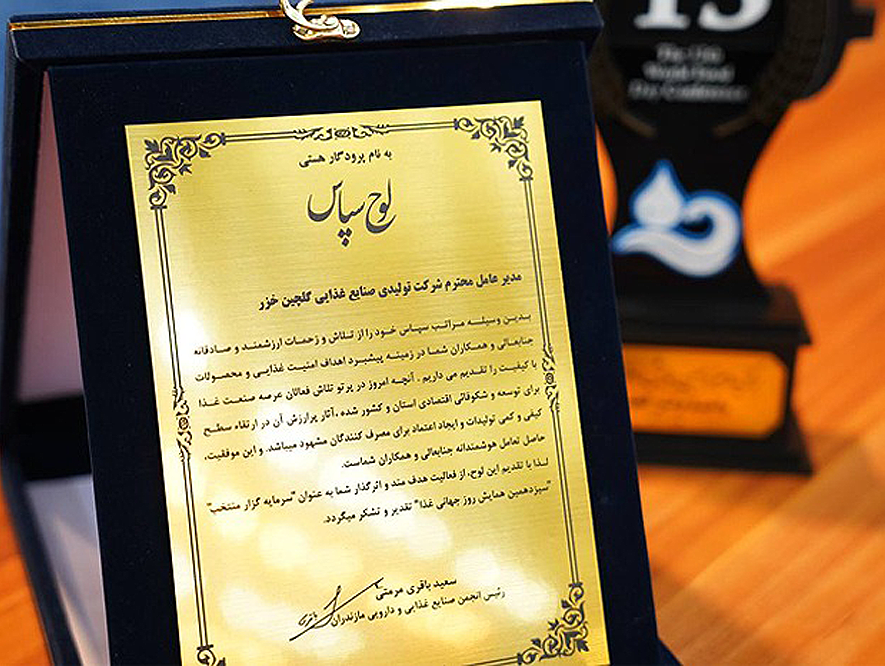 به نام پرودگار هستی
لوح سپاس
مدیر عامل محترم شرکت تولیدی صنایع غذایی گلچین خزر
بدین وسیله مراتب سپاس خود را از تلاش و زحمات ارزشمند و صادقانه
جنابعالی و همکاران شما در زمینه پیشبرد اهداف امنیت غذایی و محصولات
با کیفیت را تقدیم می داریم . آنچه امروز در پرتو تلاش فعالان عرصه صنعت غذا
برای توسعه و شکوفائی اقتصادی استان و کشور شده ،آثار پرارزش آن در ارتقاء سطح
کیفی و کمی تولیدات و ایجاد اعتماد برای مصرف کنندگان مشهود میباشد. و این موفقیت،
حاصل تعامل هوشمندانه جنابعالی و همکاران شماست.
لذا با تقدیم این لوح، از فعالیت هدف مند و اثرگذار شما به عنوان "سرمایه گزار منتخب"
"سیزدهمین همایش روز جهانی غذا" تقدیر و تشکر میگردد.
سعید باقری مرمتی
رئیس انجمن صنایع غذایی و دارویی مازندران
13
The 13th
World Food
Day Conference